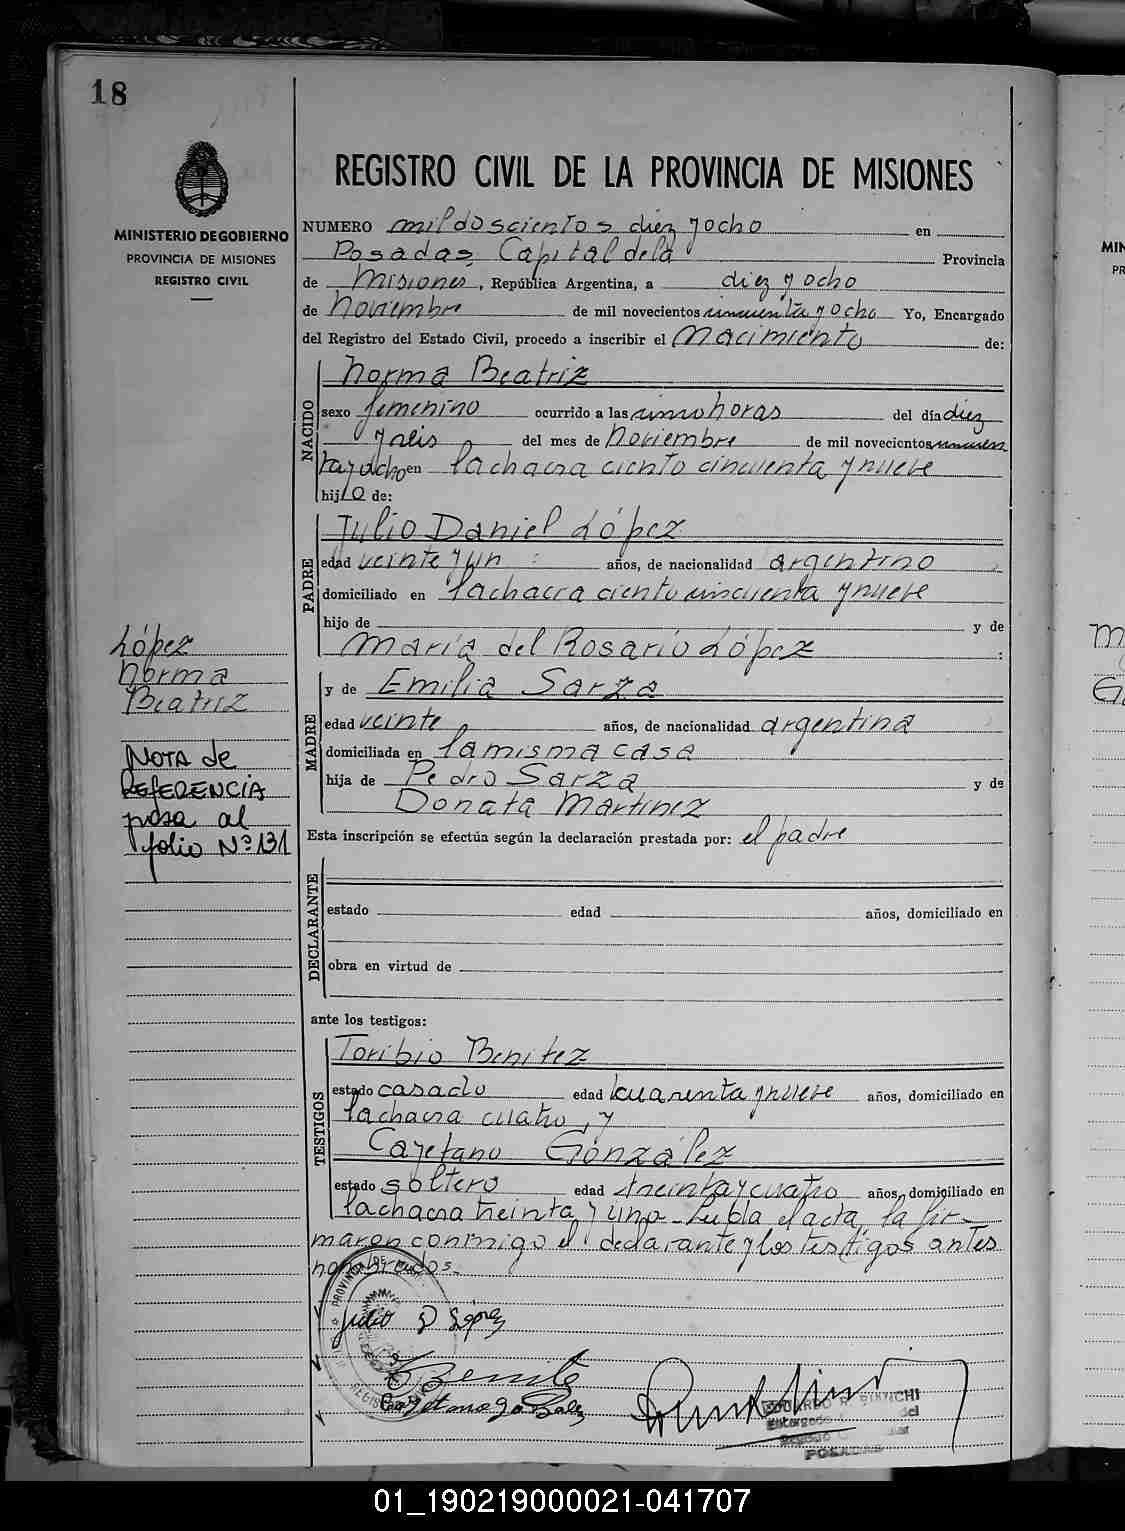 18
REGISTRO CIVIL DE LA PROVINCIA DE MISIONES
MINISTERIO DE GOBIERNO
PROVINCIA DE MISIONES
REGISTRO CIVIL
NUMERO mil doscientos diez y ocho en
Posadas, Capital de la Provincia
de Misiones, República Argentina, a diez y ocho
de Noviembre de mil novecientos cincuenta y ocho Yo, Encargado
del Registro del Estado Civil, procedo a inscribir el Nacimiento de:
NACIDO
Norma Beatriz
sexo femenino ocurrido a las cinco horas del día diez
y seis del mes de Noviembre de mil novecientos cincuen
ta y ocho en la chacra ciento cincuenta y nueve
hijo de:
PADRE
Julio Daniel López
edad veinte y un años, de nacionalidad argentino
domiciliado en la chacra ciento cincuenta y nueve
hijo de y de
María del Rosario López
MADRE
y de Emilia Sarza
edad veinte años, de nacionalidad argentina
domiciliada en la misma casa
hija de Pedro Sarza y de
Donata Martinez
Esta inscripción se efectúa según la declaración prestada por: el padre
DECLARANTE
estado edad años, domiciliado en
obra en virtud de
ante los testigos:
TESTIGOS
Toribio Benitez
estado casado edad cuarenta y nueve años, domiciliado en
la chacra cuatro, y
Cayetano González
estado soltero edad treinta y cuatro años, domiciliado en
la chacra treinta y uno. Leída el acta, la fir-
maron conmigo el declarante y los testigos antes
nombrados.
López
Norma
Beatriz
NOTA de
REFERENCIA
pasa al
folio Nº 131
Julio D López
EDUARDO R. BIANCHI
Encargado
POSADAS
01_190219000021-041707